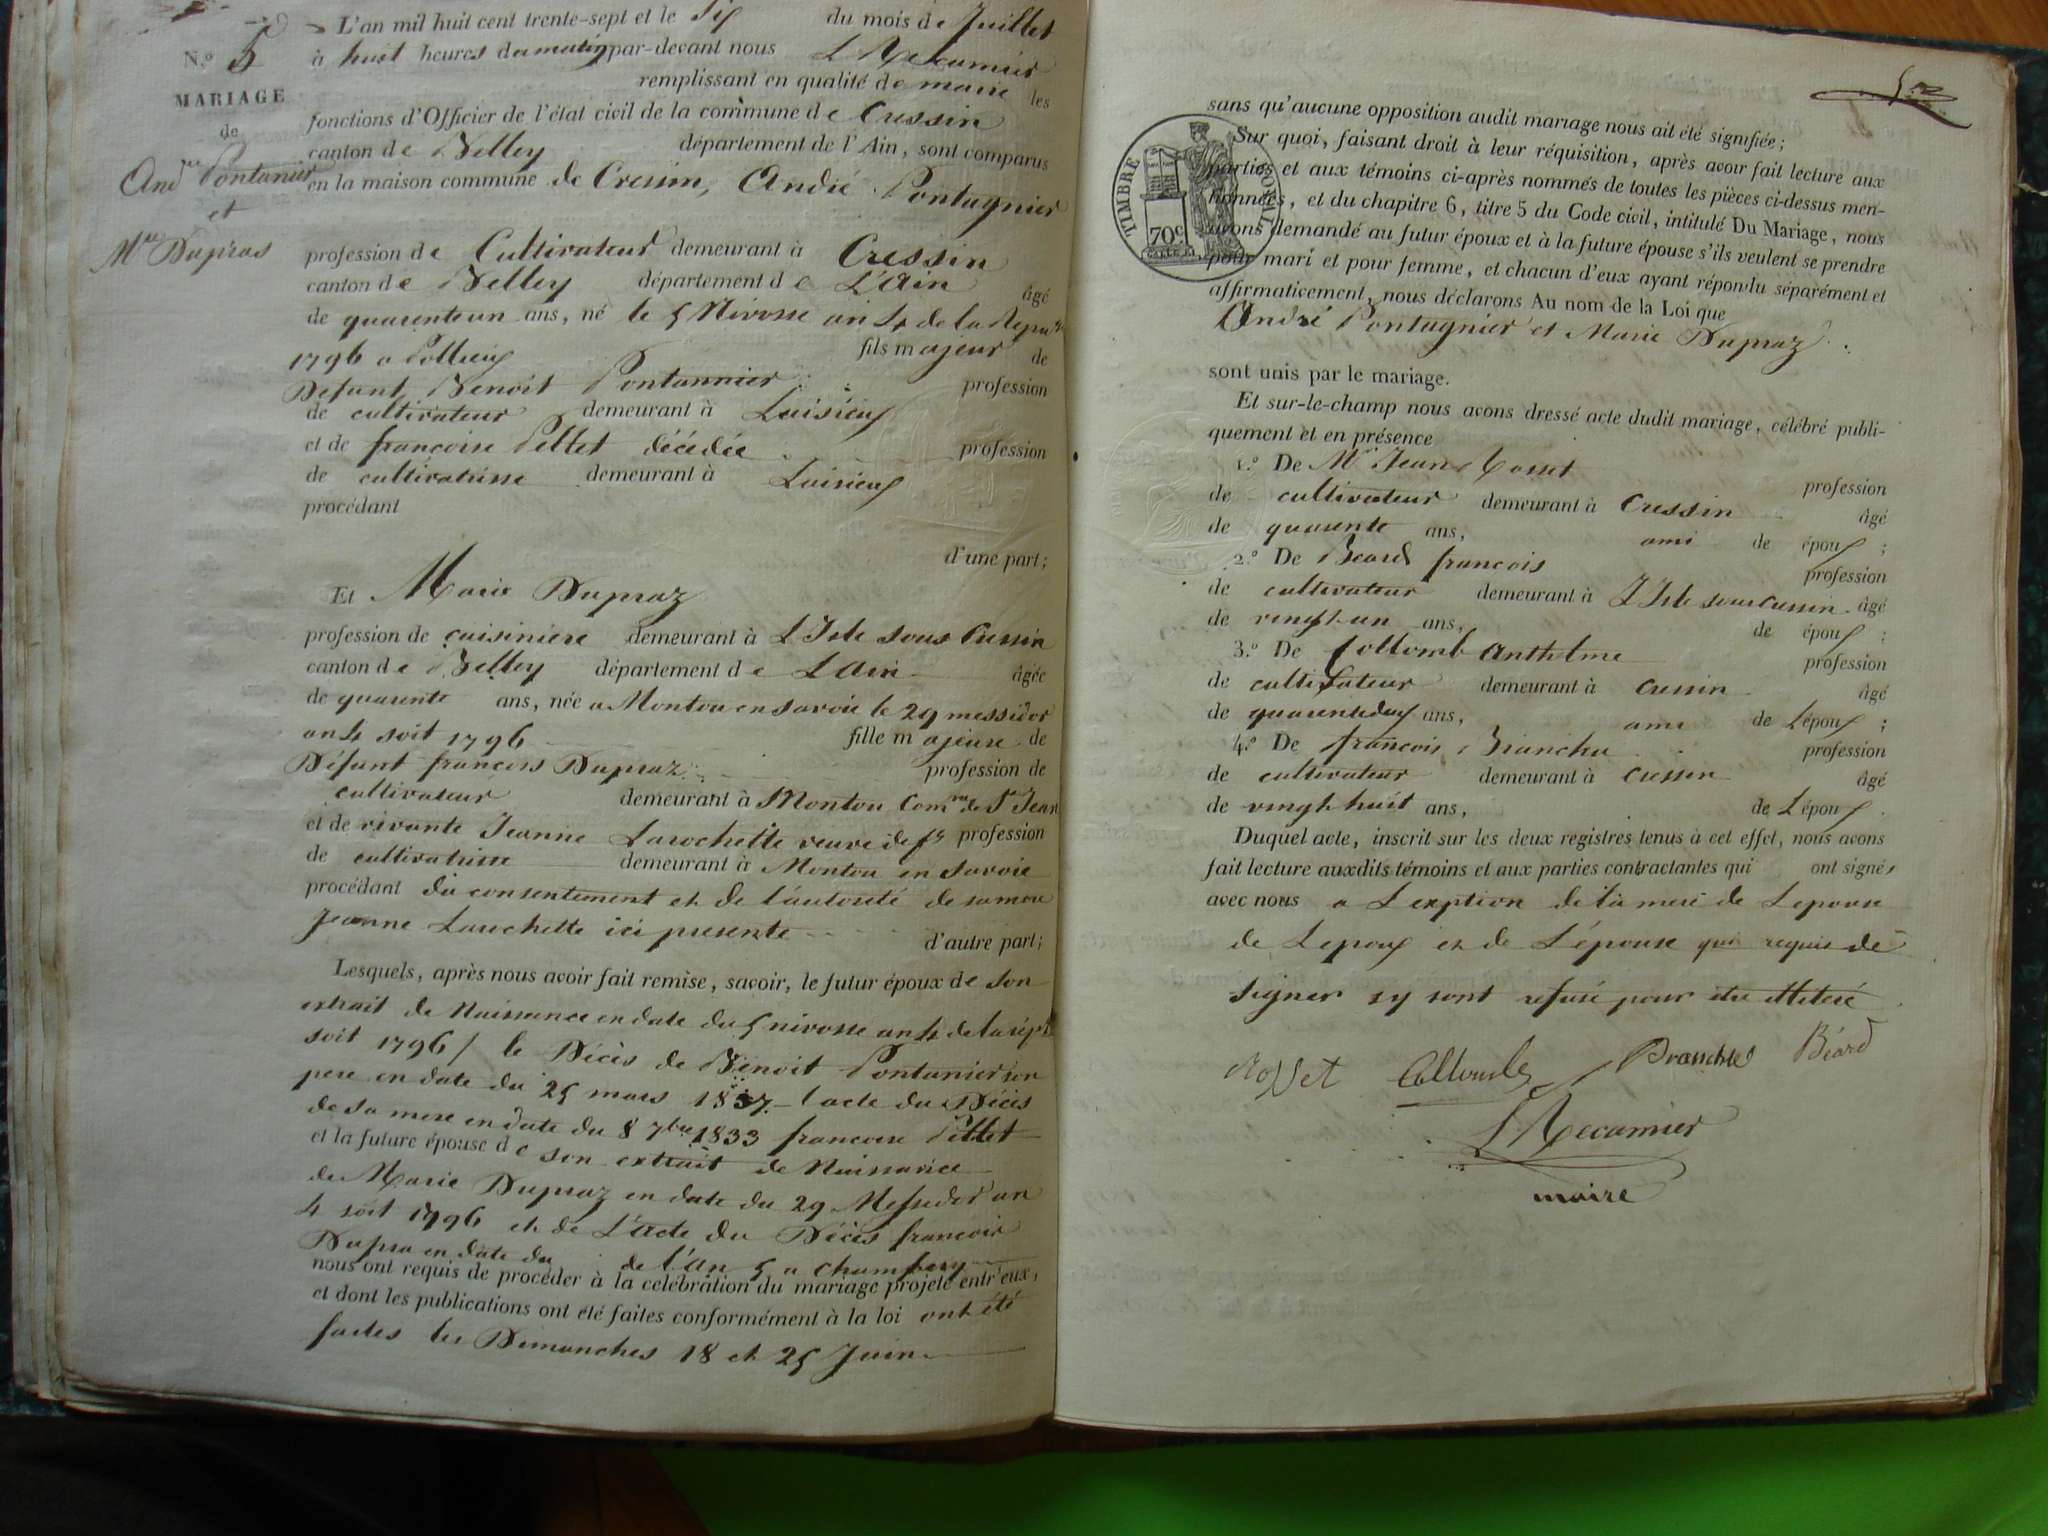 N.º 5
MARIAGE
de
And.re Pontanier
et
M.ie Dupras
L'an mil huit cent trente-sept et le Six du mois de Juillet
à huit heures du matin par-devant nous L Récamier
remplissant en qualité de maire les
fonctions d'Officier de l'état civil de la commune de Cressin
canton de Belley département de l'Ain, sont comparus
en la maison commune de Cressin, André Pontagnier
profession de Cultivateur demeurant à Cressin
canton de Belley département de L'Ain âgé
de quarente un ans, né le 5 Nivosse an 4 de la Repu
1796 a Pollieux fils majeur de
Défunt Benoit Pontannier profession
de cultivateur demeurant à Luisieux
et de françoise Pellet décédée profession
de cultivatrisse demeurant à Luisieux
procédant
d'une part;
Et Marie Dupraz
profession de cuisiniere demeurant à L'Isle sous Cressin
canton de Belley département de L'Ain âgée
de quarente ans, née a Montou en savoie le 29 messidor
an 4 soit 1796 fille majeure de
Défunt francois Dupraz profession de
cultivateur demeurant à Montou Com.ne de St Jean
et de vivante Jeanne Larochette veuve de fs profession
de cultivatrisse demeurant à Montou en savoie
procédant du consentement et de l'autorité de sa mere
Jeanne Larochette ici presente
d'autre part;
Lesquels, après nous avoir fait remise, savoir, le futur époux de son
extrait de Naissance en date du 5 nivosse an 4 de la rép
soit 1796 / le Décès de Benoit Pontanier son
pere en date du 25 mars 1837 - l acte du Décès
de sa mere en date du 8 7bre 1833 francoise Pellet
et la future épouse de son extrait de Naissance
de Marie Dupraz en date du 29 Messidor an
4 soit 1796 et de L'acte du Décès francois
Dupra en date du de l'an 5 a Chambery
nous ont requis de procéder à la célébration du mariage projeté entr'eux,
et dont les publications ont été faites conformément à la loi ont été
faites les Dimanches 18 et 25 Juin
sans qu'aucune opposition audit mariage nous ait été signifiée;
Sur quoi, faisant droit à leur réquisition, après avoir fait lecture aux
parties et aux témoins ci-après nommés de toutes les pièces ci-dessus men-
tionnées, et du chapitre 6, titre 5 du Code civil, intitulé Du Mariage, nous
avons demandé au futur époux et à la future épouse s'ils veulent se prendre
pour mari et pour femme, et chacun d'eux ayant répondu séparément et
affirmativement, nous déclarons Au nom de la Loi que
TIMBRE ROYAL
70c
André Pontagnier et Marie Dupraz
sont unis par le mariage.
Et sur-le-champ nous avons dressé acte dudit mariage, célébré publi-
quement et en présence
1.º De Mr Jean Rosset
profession
de cultivateur demeurant à Cressin âgé
de quarente ans, ami de époux ;
2.º De Beard francois profession
de cultivateur demeurant à L'Isle sous Cressin âgé
de vingt-un ans, de époux ;
3.º De Collomb Anthelme profession
de cultivateur demeurant à Cressin âgé
de quarente deux ans, ami de Lépoux ;
4.º De françois Branche profession
de cultivateur demeurant à Cressin âgé
de vingt huit ans, de Lépoux
Duquel acte, inscrit sur les deux registres tenus à cet effet, nous avons
fait lecture auxdits témoins et aux parties contractantes qui ont signés
avec nous a L'exption de la mere de Lepouse
de Lepoux et de L'épouse qui requis de
signer sy sont refusé pour etre illiteré
Rosset Collomb Branche Béard
L Recamier
maire